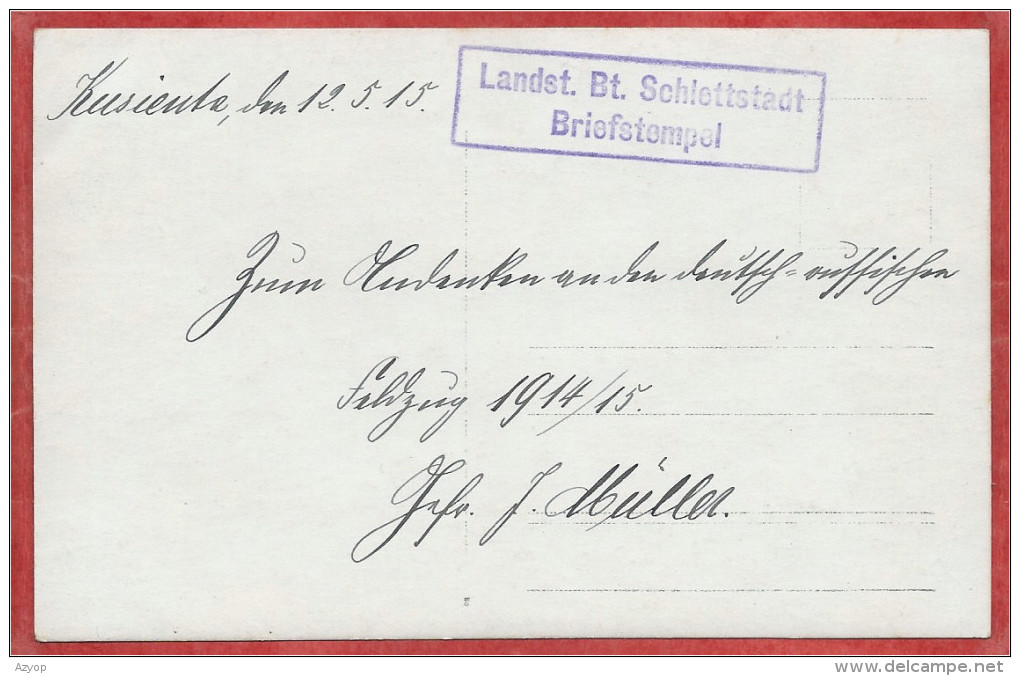 Kusienta, den 12.5.15.
Landst. Bt. Schlettstadt
Briefstempel
Zum Andenken an den deutsch=russischen
Feldzug 1914/15.
Gefr. J. Müller.
Azyop
www.delcampe.net